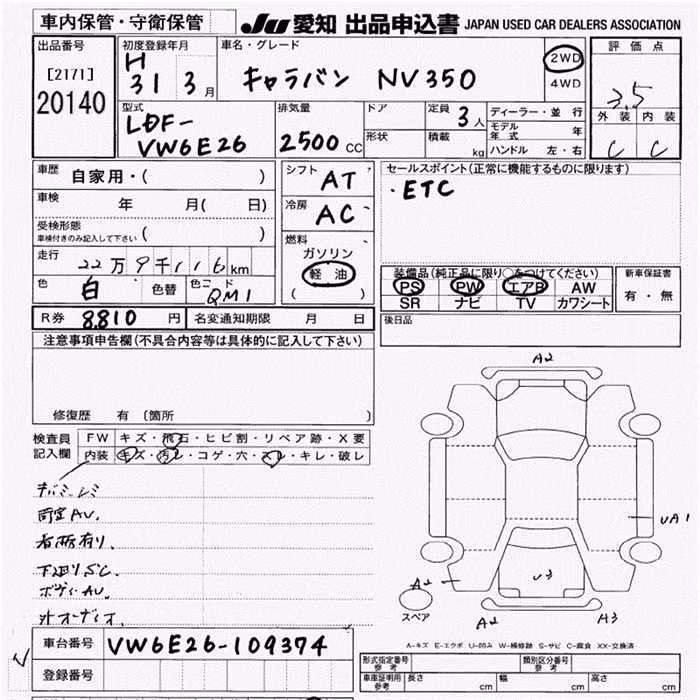 車内保管・守衛保管
JU 愛知 出品申込書 JAPAN USED CAR DEALERS ASSOCIATION
出品番号
[2171]
20140
初度登録年月
H
31 3 月
車名・グレード
キャラバン NV350
2WD
4WD
評価点
3.5
外装 内装
C C
型式
LDF-
VW6E26
排気量
2500 CC
ドア
形状
定員 3人
積載 kg
ディーラー・並行
モデル年式 年
ハンドル 左・右
車歴
自家用・( )
車検 年 月( 日)
受検形態
車検付きのみ記入して下さい ( )
走行 22万9千116km
色 白 色替 色コード QM1
シフト AT
冷房 AC
燃料
ガソリン
軽油
( )
セールスポイント(正常に機能するものに限ります)
・ETC
装備品(純正品に限り○をつけてください)
PS PW エアB AW
SR ナビ TV カワシート
新車保証書
有・無
R券 8,810 円 名変通知期限 月 日
後日品
注意事項申告欄(不具合内容等は具体的に記入して下さい)
修復歴 有 (箇所 )
検査員
記入欄
FW キズ・飛石・ヒビ割・リペア跡・X要
内装 キズ・汚レ・コゲ・穴・スレ・キレ・破レ
荷室AV.
下廻りSC.
ボディAV.
外オーディオ.
A2
UA1
A2
U3
A2
A3
スペア
A-キズ E-エクボ U-凹み W-補修跡 S-サビ C-腐食 XX-交換済
車台番号 VW6E26-109374
登録番号
形式指定番号
参考
類別区分番号
参考
車庫証明用
参考
長さ cm 幅 cm 高さ cm